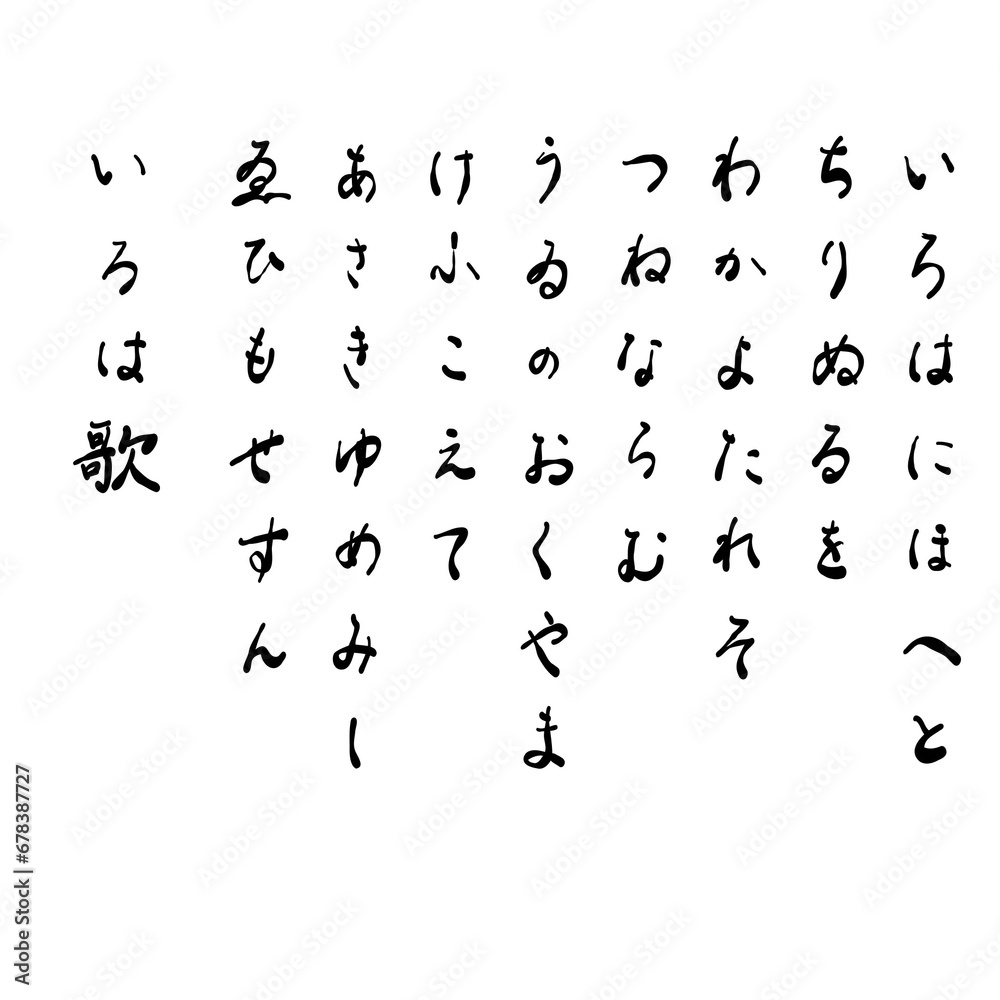 いろはにほへと
ちりぬるを
わかよたれそ
つねならむ
うゐのおくやま
けふこえて
あさきゆめみし
ゑひもせすん
いろは歌
Adobe Stock | #678387727